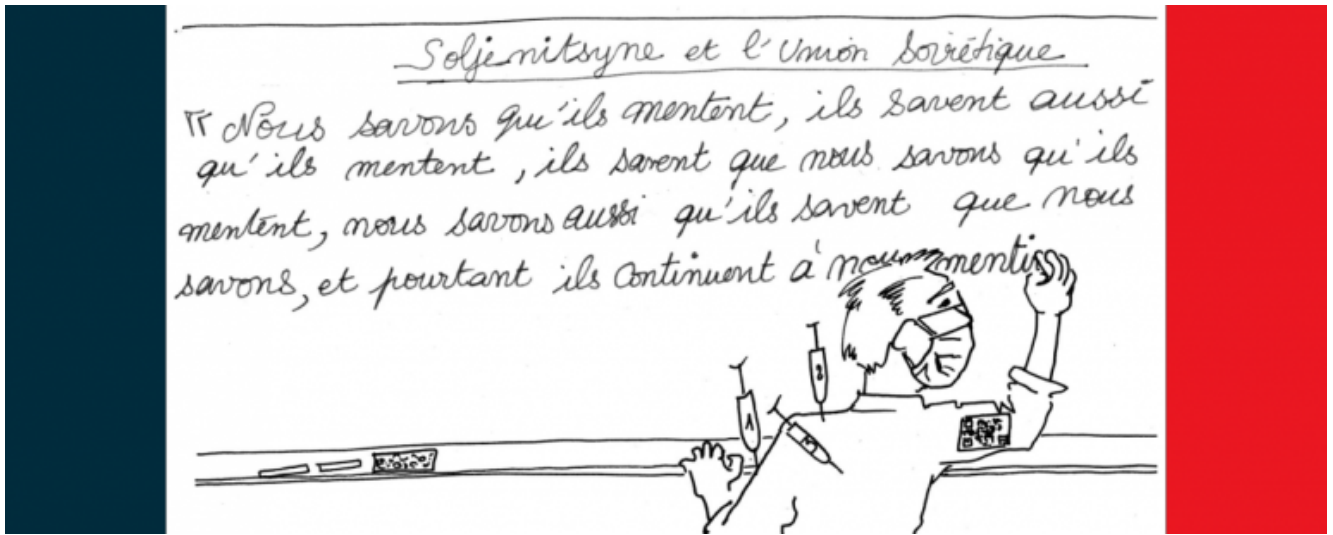 Soljenitsyne et l'Union Soviétique
"Nous savons qu'ils mentent, ils savent aussi
qu'ils mentent, ils savent que nous savons qu'ils
mentent, nous savons aussi qu'ils savent que nous
savons, et pourtant ils continuent à nous mentir
2
1
3